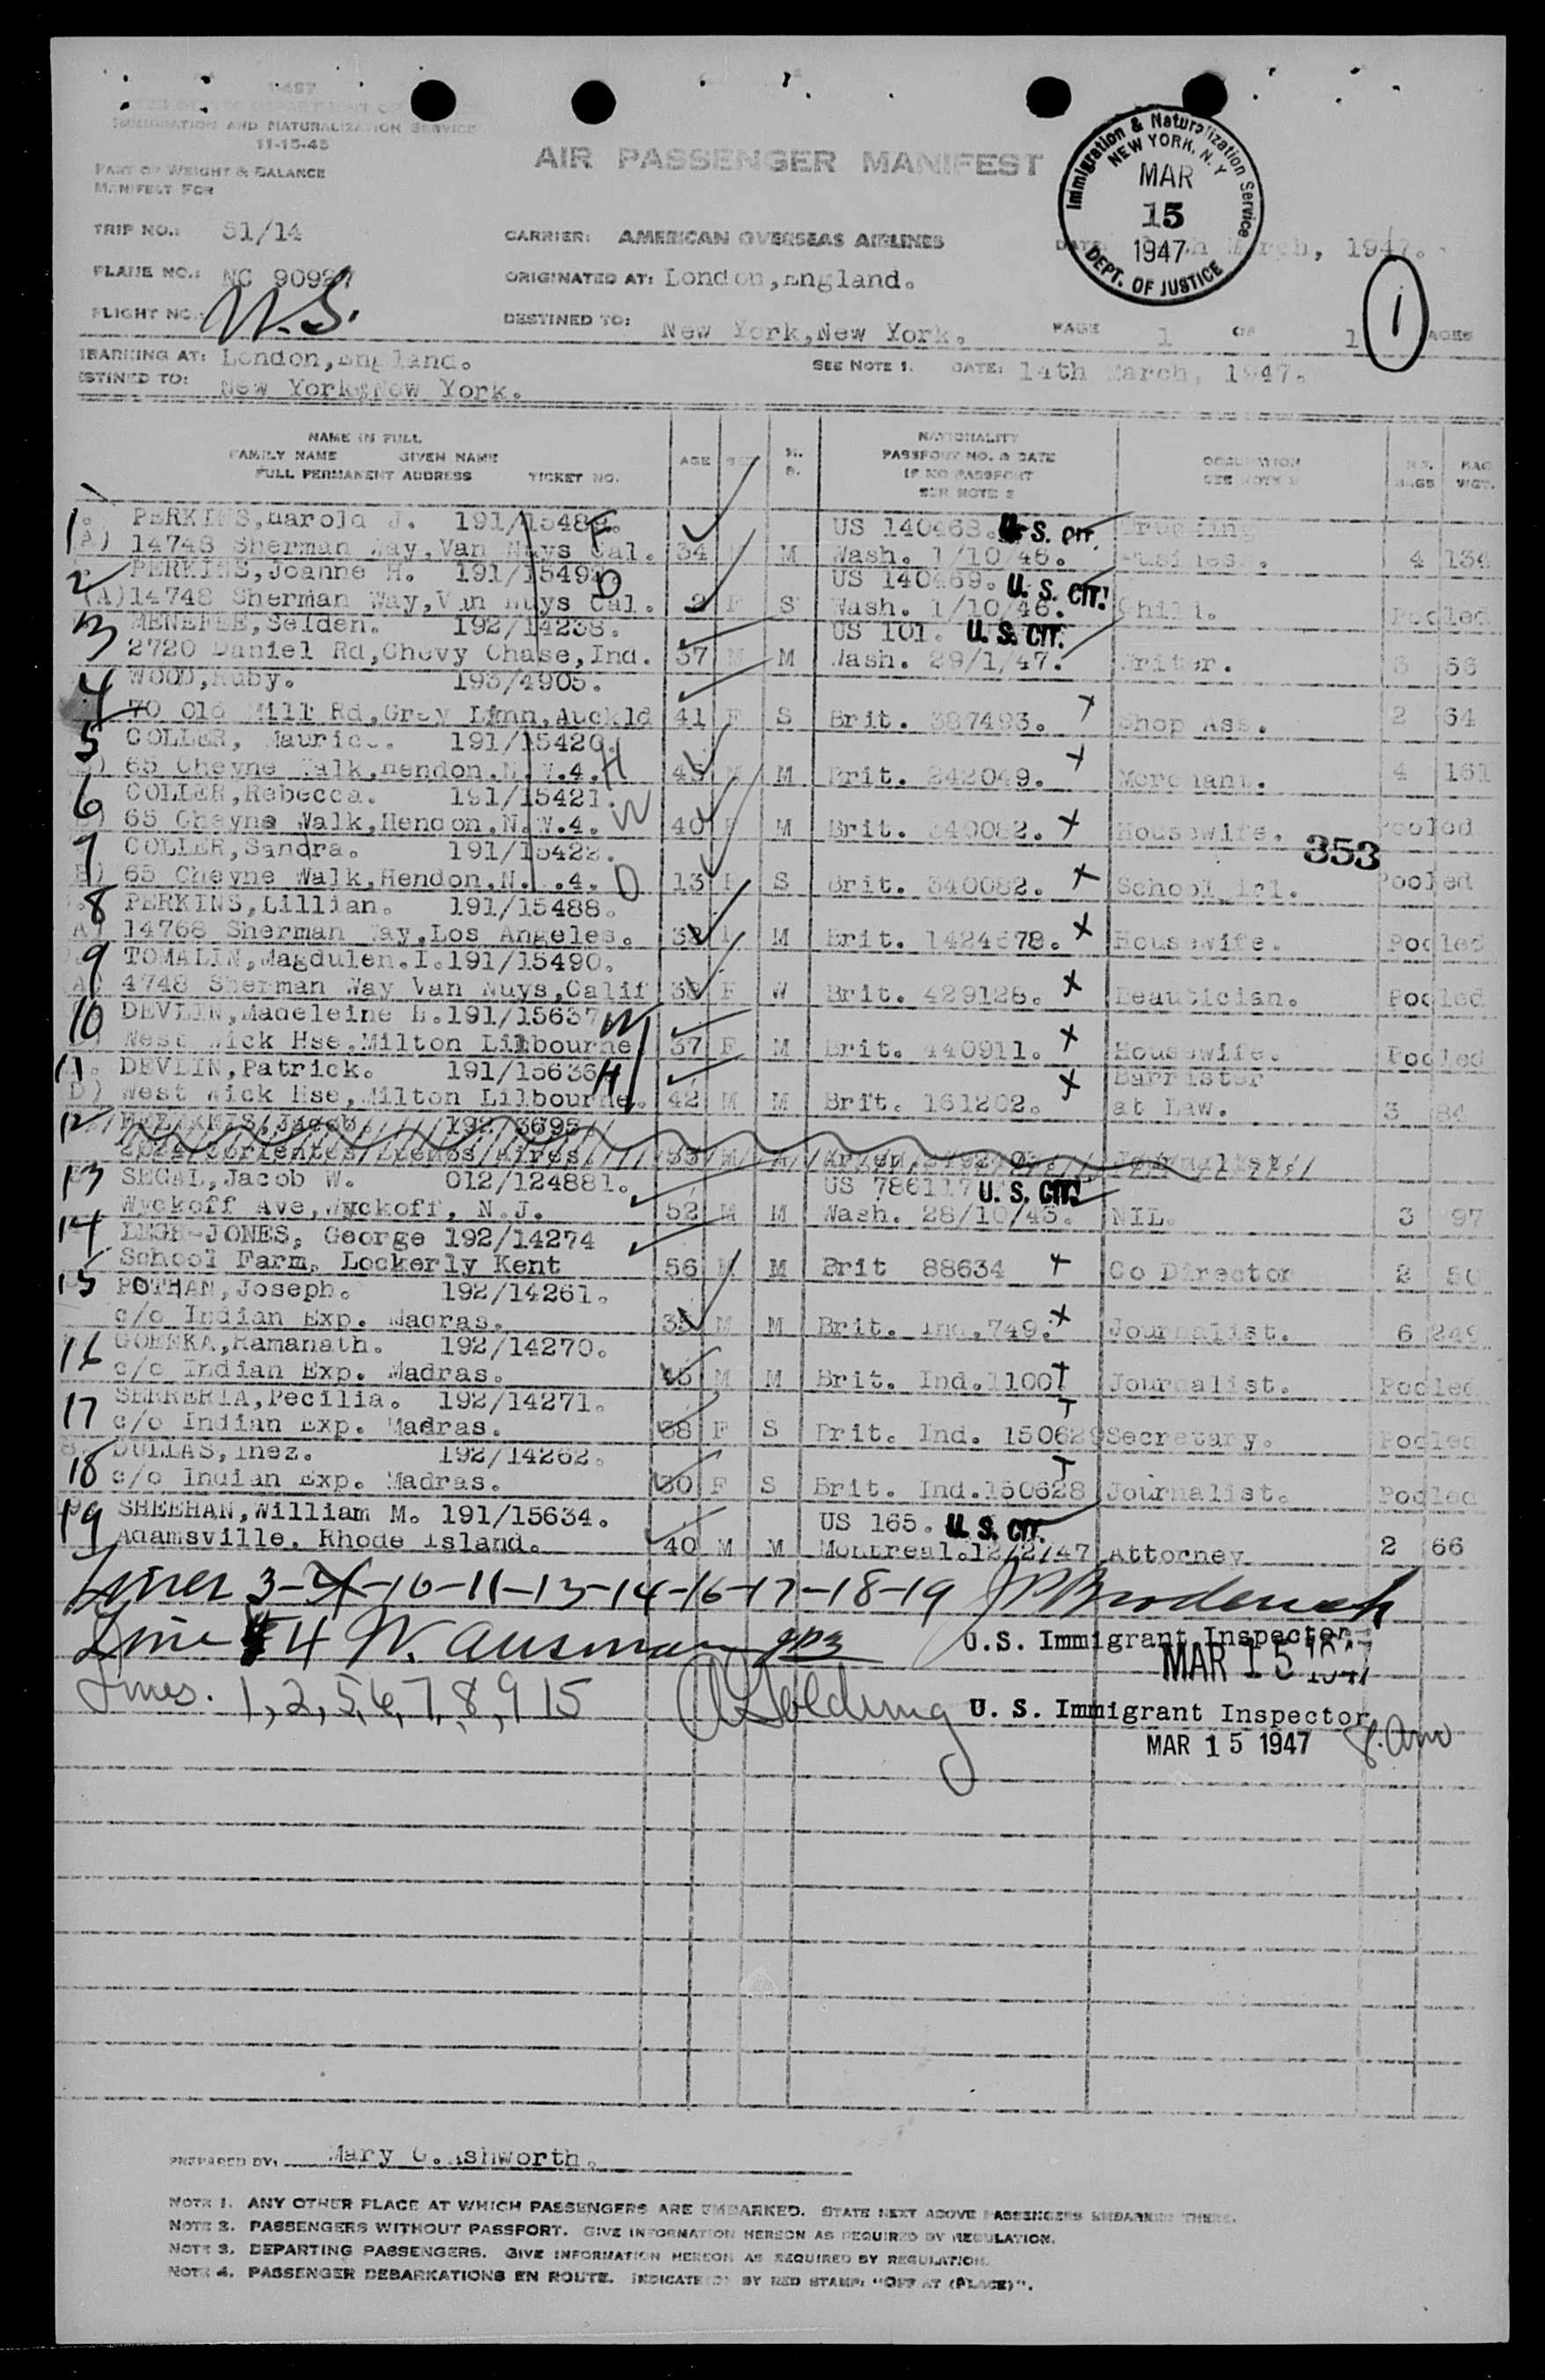 IMMIGRATION AND NATURALIZATION SERVICE
11-15-45
PART OF WEIGHT & BALANCE
MANIFEST FOR
AIR PASSENGER MANIFEST
Immigration & Naturalization Service
NEW YORK, N. Y.
MAR
15
1947
DEPT. OF JUSTICE
TRIP NO.: 51/14
CARRIER: AMERICAN OVERSEAS AIRLINES
DATE: March, 1947.
PLANE NO.: NC 90927
ORIGINATED AT: London,England.
FLIGHT NO.:
DESTINED TO: New York,New York.
PAGE 1 OF 1 PAGES
1
EMBARKING AT: London,England.
SEE NOTE 1. DATE: 14th March, 1947.
DESTINED TO: New York,New York.
NAME IN FULL
FAMILY NAME GIVEN NAME
FULL PERMANENT ADDRESS TICKET NO.
AGE SEX M. S.
NATIONALITY
PASSPORT NO. & DATE
IF NO PASSPORT
SEE NOTE 2
OCCUPATION
SEE NOTE
NO. BAGS BAG WGT.
1 PERKINS,Harold J. 191/15489. F US 140468. U. S. CIT. Trucking
A) 14748 Sherman Way,Van Nuys Cal. 34 M Wash. 1/10/46. Business. 4 134
2 PERKINS,Joanne H. 191/15492 D US 140469. U. S. CIT.
(A) 14748 Sherman Way,Van Nuys Cal. 2 F S Wash. 1/10/46. Child. Pooled
3 MENEFEE,Selden. 192/14238. US 101. U. S. CIT.
2720 Daniel Rd,Chevy Chase,Ind. 37 M M Wash. 29/1/47. Writer. 3 56
4 WOOD,Ruby. 193/4905.
70 Old Mill Rd,Grey Linn,Auckld 41 F S Brit. 387493. Shop Ass. 2 54
5 COLLER, Maurice. 191/15420. H
65 Cheyne Walk,Hendon.N.W.4. M M Brit. 242049. Merchant. 4 161
6 COLLER,Rebecca. 191/15421. W
65 Cheyne Walk,Hendon,N.W.4. 40 F M Brit. 340082. Housewife. Pooled
353
7 COLLER,Sandra. 191/15422.
65 Cheyne Walk,Hendon,N. .4. D 13 F S Brit. 340082. Schoolgirl. Pooled
8 PERKINS,Lillian. 191/15488.
A) 14768 Sherman Way,Los Angeles. F M Brit. 1424678. Housewife. Pooled
9 TOMALIN,Magdulen.I.191/15490.
A) 4748 Sherman Way Van Nuys,Calif F W Brit. 429128. Beautician. Pooled
10 DEVLIN,Madeleine B.191/15637 W
West Wick Hse,Milton Lilbourne 37 F M Brit. 440911. Housewife. Pooled
11. DEVLIN,Patrick. 191/15636 H Barrister
D) West Wick Hse,Milton Lilbourne. 42 M M Brit. 161202. at Law. 3 84
12 192/3695
13 SEGAL,Jacob W. 012/124881. US 786117 U. S. CIT.
Wyckoff Ave,Wyckoff, N.J. 52 M M Wash. 28/10/43. NIL. 3 97
14 LEGH-JONES, George 192/14274
School Farm, Lockerly Kent 56 M M Brit 88634 Co Director 2 50
15 POTHAN,Joseph. 192/14261.
c/o Indian Exp. Madras. 35 M M Brit. Ind.749. Journalist. 6 249
16 GOENKA,Ramanath. 192/14270.
c/o Indian Exp. Madras. 45 M M Brit. Ind.1100 Journalist. Pooled
17 SERRERIA,Pecilia. 192/14271.
c/o Indian Exp. Madras. 38 F S Brit. Ind. 150629 Secretary. Pooled
18 DULLAS,Inez. 192/14262.
c/o Indian Exp. Madras. 30 F S Brit. Ind.150628 Journalist. Pooled
19 SHEEHAN,William M. 191/15634. US 165. U. S. CIT.
Adamsville, Rhode Island. 40 M M Montreal.12/2/47 Attorney 2 66
Lines 3-4-10-11-13-14-16-17-18-19
Line 4 W. Ausman
U.S. Immigrant Inspector
MAR 15 1947
Lines. 1,2,5,6,7,8,9 15
U. S. Immigrant Inspector
MAR 15 1947
PREPARED BY: Mary G. Ashworth.
NOTE 1. ANY OTHER PLACE AT WHICH PASSENGERS ARE EMBARKED. STATE NEXT ABOVE PASSENGERS EMBARKED THERE.
NOTE 2. PASSENGERS WITHOUT PASSPORT. GIVE INFORMATION HEREON AS REQUIRED BY REGULATION.
NOTE 3. DEPARTING PASSENGERS. GIVE INFORMATION HEREON AS REQUIRED BY REGULATION.
NOTE 4. PASSENGER DEBARKATIONS EN ROUTE. INDICATE(D) BY RED STAMP: "OFF AT (PLACE)".